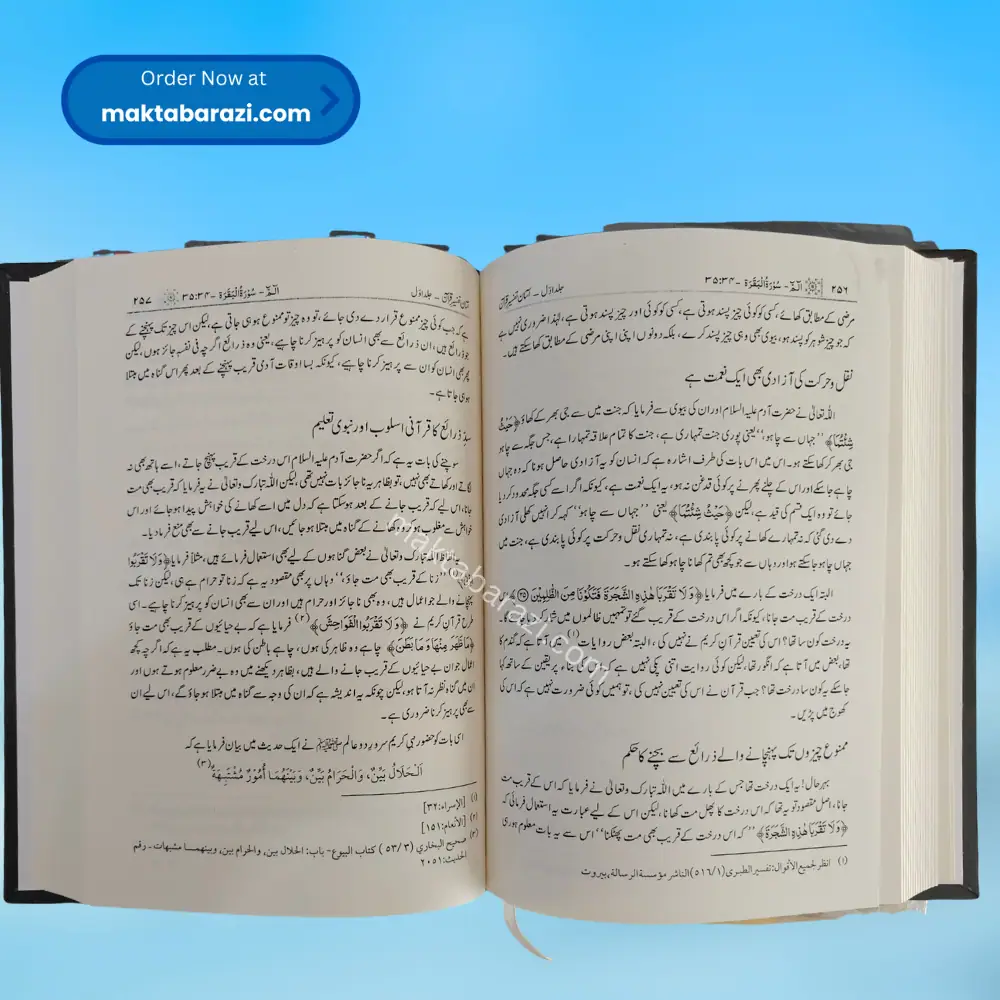 Order Now at
maktabarazi.com
۲۵۶ الٓمّٓ - سُوْرَةُ الْبَقَرَة - ۳۵:۳۴ جلد اوّل - آسان تفسیر قرآن
مرضی کے مطابق کھائے، کسی کو کوئی چیز پسند ہوتی ہے، کسی کو کوئی اور چیز پسند ہوتی ہے، لہٰذا ضروری نہیں ہے
کہ جو چیز شوہر کو پسند ہو، بیوی بھی وہی چیز پسند کرے، بلکہ دونوں اپنی اپنی مرضی کے مطابق کھا سکتے ہیں۔
نقل و حرکت کی آزادی بھی ایک نعمت ہے
اللہ تعالیٰ نے حضرت آدم علیہ السلام اور ان کی بیوی سے فرمایا کہ جنت میں سے جی بھر کے کھاؤ ﴿حَيْثُ
شِئْتُمَا﴾ ’’جہاں سے چاہو‘‘ یعنی پوری جنت تمہاری ہے، جنت کا تمام علاقہ تمہارا ہے، جس جگہ سے چاہو
جی بھر کر کھا سکتے ہو۔ اس میں اس بات کی طرف اشارہ ہے کہ انسان کو یہ آزادی حاصل ہونا کہ وہ جہاں
چاہے جا سکے اور اس کے چلنے پھرنے پر کوئی قدغن نہ ہو، یہ ایک نعمت ہے، کیونکہ اگر اسے کسی جگہ محدود کر دیا
جائے تو وہ ایک قسم کی قید ہے، لیکن ﴿حَيْثُ شِئْتُمَا﴾ یعنی ’’جہاں سے چاہو‘‘ کہہ کر انہیں کھلی آزادی
دے دی گئی کہ نہ تمہارے کھانے پر کوئی پابندی ہے، نہ تمہاری نقل و حرکت پر کوئی پابندی ہے، جنت میں
جہاں چاہو جا سکتے ہو اور وہاں سے جو کچھ بھی تم کھانا چاہو کھا سکتے ہو۔
البتہ ایک درخت کے بارے میں فرمایا ﴿وَلَا تَقْرَبَا هٰذِهِ الشَّجَرَةَ فَتَكُوْنَا مِنَ الظّٰلِمِيْنَ ۝۳۵﴾
درخت کے قریب مت جانا، کیونکہ اگر اس درخت کے قریب گئے تو تمہیں ظالموں میں شمار کیا جائے گا۔
یہ درخت کون سا تھا؟ اس کی تعیین قرآن کریم نے نہیں کی، البتہ بعض روایات (۱) میں آتا ہے کہ گندم کا
تھا، بعض میں آتا ہے کہ انگور تھا، لیکن کوئی روایت اتنی پکی نہیں ہے کہ اس کی بناء پر یقین کے ساتھ کہا
جا سکے یہ کون سا درخت تھا؟ جب قرآن نے اس کی تعیین نہیں کی، تو ہمیں کوئی ضرورت نہیں ہے کہ اس کی
کھوج میں پڑیں۔
ممنوع چیزوں تک پہنچانے والے ذرائع سے بچنے کا حکم
بہرحال! یہ ایک درخت تھا جس کے بارے میں اللہ تبارک وتعالیٰ نے فرمایا کہ اس کے قریب مت
جانا، اصل مقصود تو یہ تھا کہ اس درخت کا پھل مت کھانا، لیکن اس کے لیے عبارت یہ استعمال فرمائی کہ
﴿وَلَا تَقْرَبَا هٰذِهِ الشَّجَرَةَ﴾ ’’کہ اس درخت کے قریب بھی مت پھٹکنا‘‘ اس سے یہ بات معلوم ہوئی
(۱) انظر لجميع الأقوال: تفسير الطبري (٥١٦/١) الناشر مؤسسة الرسالة، بيروت
آسان تفسیر قرآن - جلد اوّل الٓمّٓ - سُوْرَةُ الْبَقَرَة - ۳۵:۳۴ ۲۵۷
ہے کہ جب کوئی چیز ممنوع قرار دے دی جائے، تو وہ چیز تو ممنوع ہو ہی جاتی ہے، لیکن اس چیز تک پہنچنے کے
جو ذرائع ہیں، ان ذرائع سے بھی انسان کو پرہیز کرنا چاہیے، یعنی وہ ذرائع اگرچہ فی نفسہٖ جائز ہوں، لیکن
پھر بھی انسان کو ان سے پرہیز کرنا چاہیے، کیونکہ بسا اوقات آدمی قریب پہنچنے کے بعد پھر اس گناہ میں مبتلا
ہو ہی جاتا ہے۔
سدِّ ذرائع کا قرآنی اسلوب اور نبوی تعلیم
سوچنے کی بات یہ ہے کہ اگر حضرت آدم علیہ السلام اس درخت کے قریب پہنچ جاتے، اسے ہاتھ بھی نہ
لگاتے اور کھاتے بھی نہیں، تو بظاہر یہ ناجائز بات نہیں تھی، لیکن اللہ تبارک وتعالیٰ نے یہ فرمایا کہ قریب بھی مت
جانا، اس لیے کہ قریب جانے کے بعد ہو سکتا ہے کہ دل میں اسے کھانے کی خواہش پیدا ہو جائے اور اس
خواہش سے مغلوب ہو کر وہ کھانے کے گناہ میں مبتلا ہو جائیں، اس لیے قریب جانے سے بھی منع فرما دیا۔
یہ الفاظ اللہ تبارک وتعالیٰ نے بعض گناہوں کے لیے بھی استعمال فرمائے ہیں، مثلاً فرمایا ﴿وَلَا تَقْرَبُوا
’’زنا کے قریب بھی مت جاؤ‘‘، وہاں پر بھی مقصود یہ ہے کہ زنا تو حرام ہے ہی، لیکن زنا تک
پہنچانے والے جو اعمال ہیں، وہ بھی ناجائز اور حرام ہیں اور ان سے بھی انسان کو پرہیز کرنا چاہیے۔ اسی
طرح قرآن کریم نے ﴿وَلَا تَقْرَبُوا الْفَوَاحِشَ﴾ (۲) فرمایا ہے کہ بے حیائیوں کے قریب بھی مت جاؤ
﴿مَا ظَهَرَ مِنْهَا وَمَا بَطَنَ﴾ چاہے وہ ظاہر کی ہوں، چاہے باطن کی ہوں۔ مطلب یہ ہے کہ اگرچہ کچھ
اعمال جو ان بے حیائیوں کے قریب جانے والے ہیں، بظاہر دیکھنے میں وہ بے ضرر معلوم ہوتے ہوں اور
ان میں گناہ نظر نہ آتا ہو، لیکن چونکہ یہ اندیشہ ہے کہ ان کی وجہ سے گناہ میں مبتلا ہو جاؤ گے، اس لیے ان
سے بھی پرہیز کرنا ضروری ہے۔
اسی بات کو حضور نبی کریم سرورِ دو عالم ﷺ نے ایک حدیث میں بیان فرمایا ہے کہ
اَلْحَلَالُ بَيِّنٌ، وَالْحَرَامُ بَيِّنٌ، وَبَيْنَهُمَا أُمُوْرٌ مُشْتَبِهَةٌ (۳)
(۱) [الإسراء: ٣٢]
(۲) [الأنعام: ١٥١]
(۳) صحيح البخاري (٥٣/٣) كتاب البيوع- باب: الحلال بين، والحرام بين، وبينهما مشبهات - رقم
الحديث: ٢٠٥١
maktabarazi.com